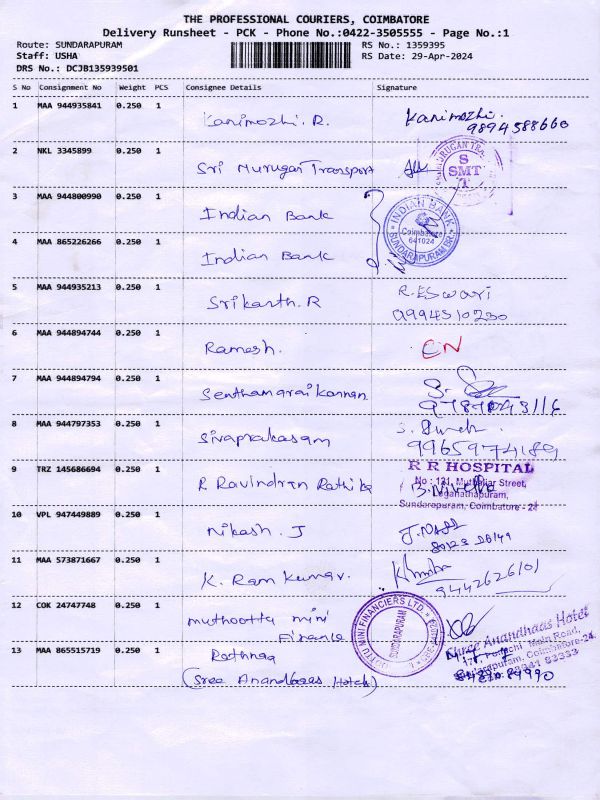 THE PROFESSIONAL COURIERS, COIMBATORE
Delivery Runsheet - PCK - Phone No.:0422-3505555 - Page No.:1
Route: SUNDARAPURAM
RS No.: 1359395
Staff: USHA
RS Date: 29-Apr-2024
DRS No.: DCJB135939501
S No Consignment No Weight PCS Consignee Details Signature
1 MAA 944935841 0.250 1 Kanimozhi. R. Kanimozhi.
9894588660
2 NKL 3345899 0.250 1 Sri Murugan Transport
S
SMT
T
3 MAA 944800990 0.250 1 Indian Bank
INDIAN BANK
Coimbatore
641024
SUNDARAPURAM BR.
4 MAA 865226266 0.250 1 Indian Bank
5 MAA 944935213 0.250 1 Srikanth. R R. ESwari
9994510230
6 MAA 944894744 0.250 1 Ramesh. CN
7 MAA 944894794 0.250 1 Senthamaraikannan
8 MAA 944797353 0.250 1 Sivaprakasam
9965974189
9 TRZ 145686694 0.250 1 R Ravindran Rathika
R R HOSPITAL
No : 121, Muthaliar Street,
Loganathapuram,
Sundarapuram, Coimbatore - 24
10 VPL 947449889 0.250 1 Nikash. J
11 MAA 573871667 0.250 1 K. Ram Kumar.
9442626101
12 COK 24747748 0.250 1 muthootta mini
Finance
MINI FINANCIERS LTD
SUNDARAPURAM
13 MAA 865515719 0.250 1 Rathnaa
(Sree Anandhaas Hotel)
Shree Anandhaas Hotel
Pollachi Main Road,
Sundarapuram, Coimbatore-24.